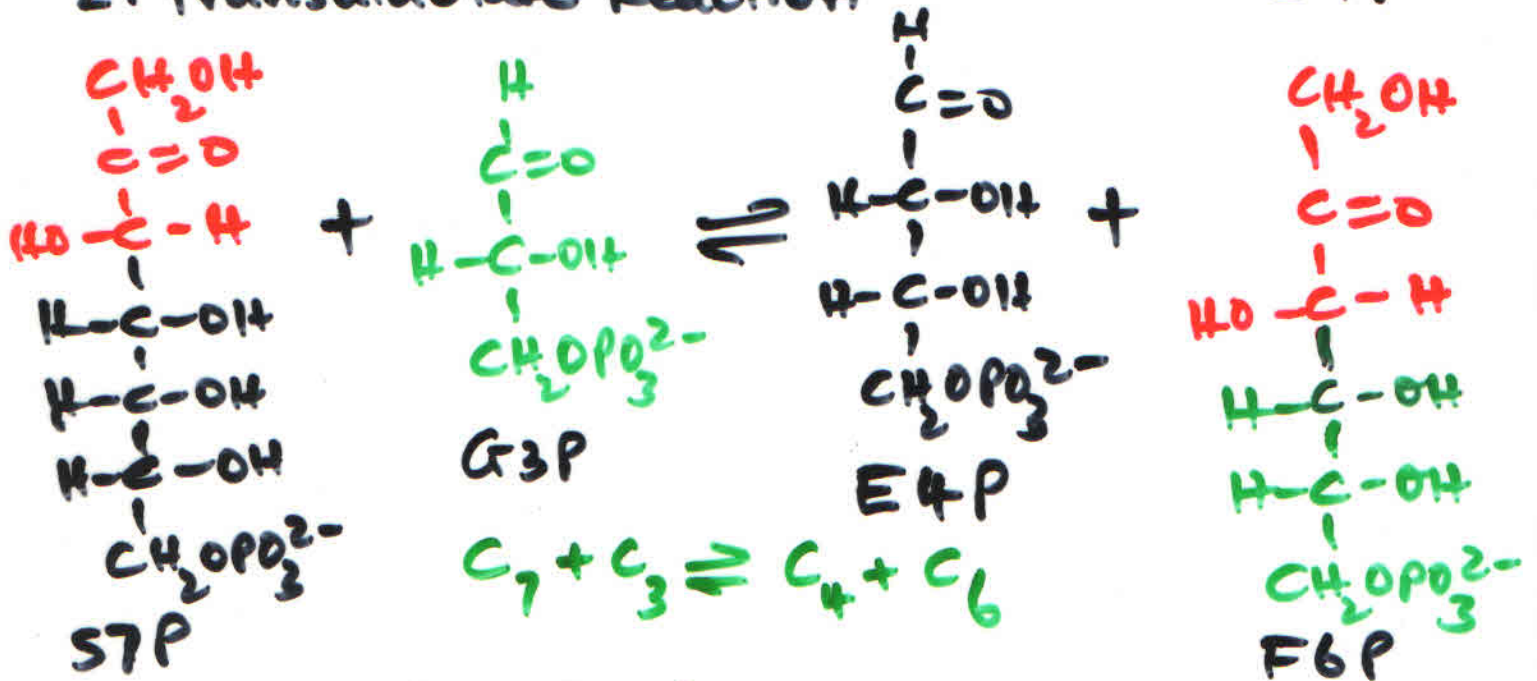 2. Transaldolase Reaction
CH2OH
C=O
HO-C-H
H-C-OH
H-C-OH
H-C-OH
CH2OPO3^2-
S7P
+
H
C=O
H-C-OH
CH2OPO3^2-
G3P
⇌
H
C=O
H-C-OH
H-C-OH
CH2OPO3^2-
E4P
+
CH2OH
C=O
HO-C-H
H-C-OH
H-C-OH
CH2OPO3^2-
F6P
C7 + C3 ⇌ C4 + C6